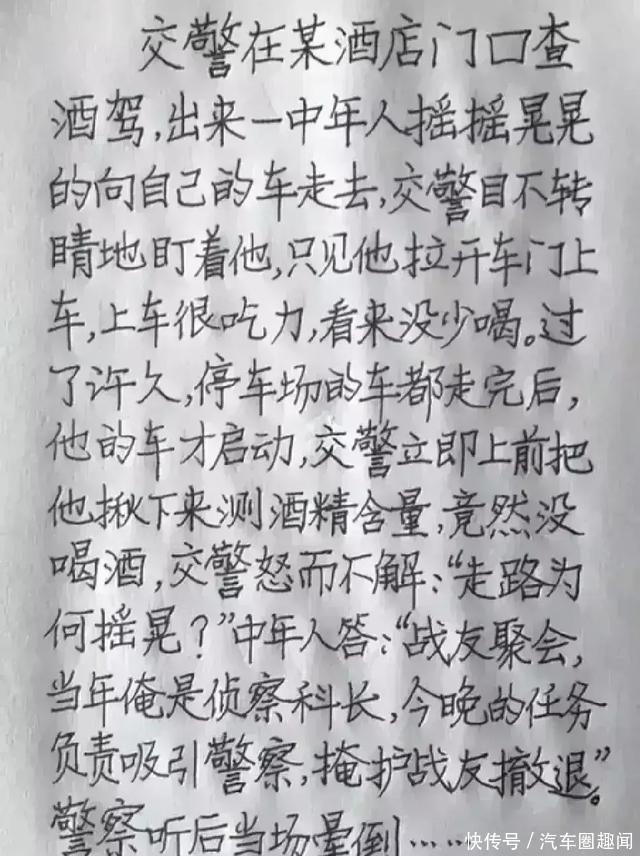 交警在某酒店门口查
酒驾,出来一中年人摇摇晃晃
的向自己的车走去,交警目不转
睛地盯着他,只见他拉开车门上
车,上车很吃力,看来没少喝。过
了许久,停车场的车都走完后,
他的车才启动,交警立即上前把
他揪下来测酒精含量,竟然没
喝酒,交警怒而不解:“走路为
何摇晃?”中年人答:“战友聚会,
当年俺是侦察科长,今晚的任务
负责吸引警察,掩护战友撤退。”
警察听后当场晕倒……
快传号/汽车圈趣闻